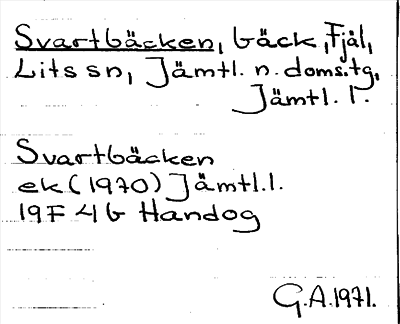 Svartbäcken, bäck, Fjäl,
Lits sn, Jämtl. n. doms.tg,
Jämtl. l.
Svartbäcken
ek (1970) Jämtl.l.
19F 4b Handog
G.A. 1971.